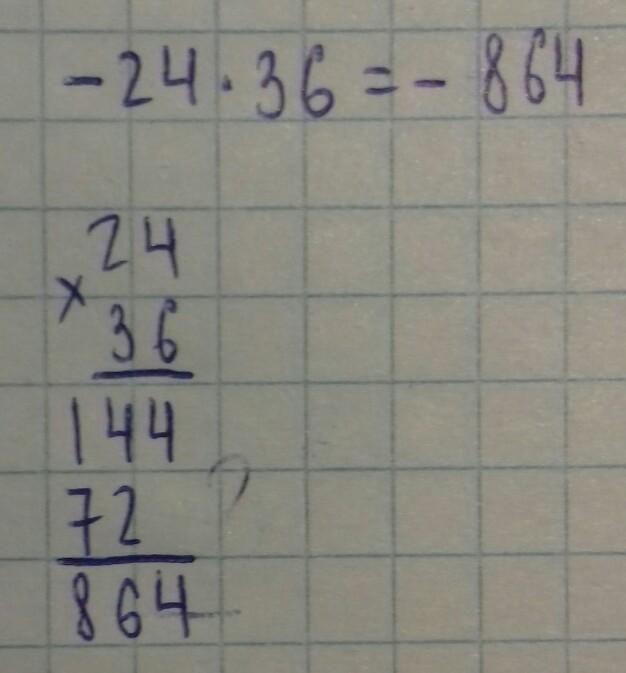 -24·36=-864
24
×
36
144
72
864